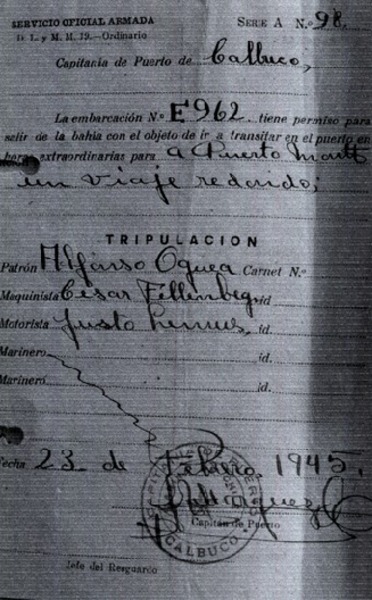 SERVICIO OFICIAL ARMADA
SERIE A N.o 98.
D. I. y M. M. 19.-Ordinario
Capitanía de Puerto de Calbuco,
La embarcación N.o E 962 tiene permiso para
salir de la bahía con el objeto de ir a transitar en el puerto en
horas extraordinarias para a Puerto Montt
un viaje redondo;
TRIPULACION
Patrón Alfonso Carnet N.o
Maquinista César id
Motorista Justo Lemus, id.
Marinero id.
Marinero id.
Fecha 23 de Febrero 1945.
Capitán de Puerto
CALBUCO
Jefe del Resguardo